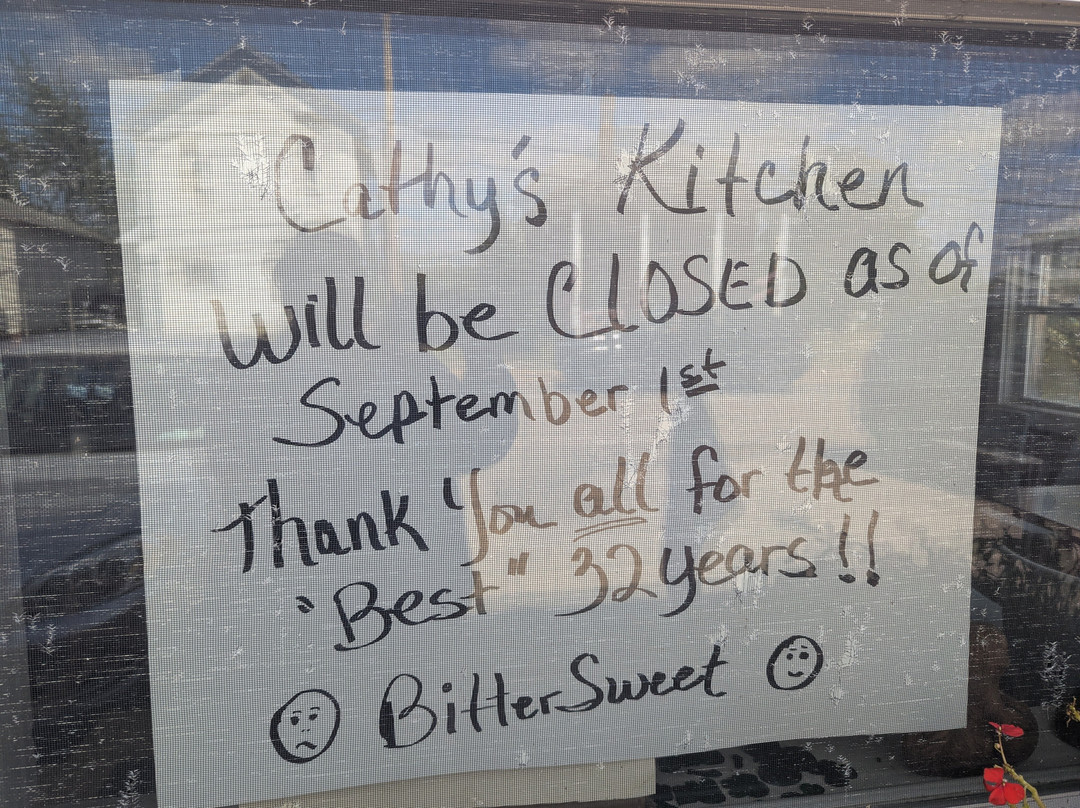 Cathy's Kitchen
will be ClOSED as of
September 1st
Thank You all for the
"Best" 32 years!!
BitterSweet